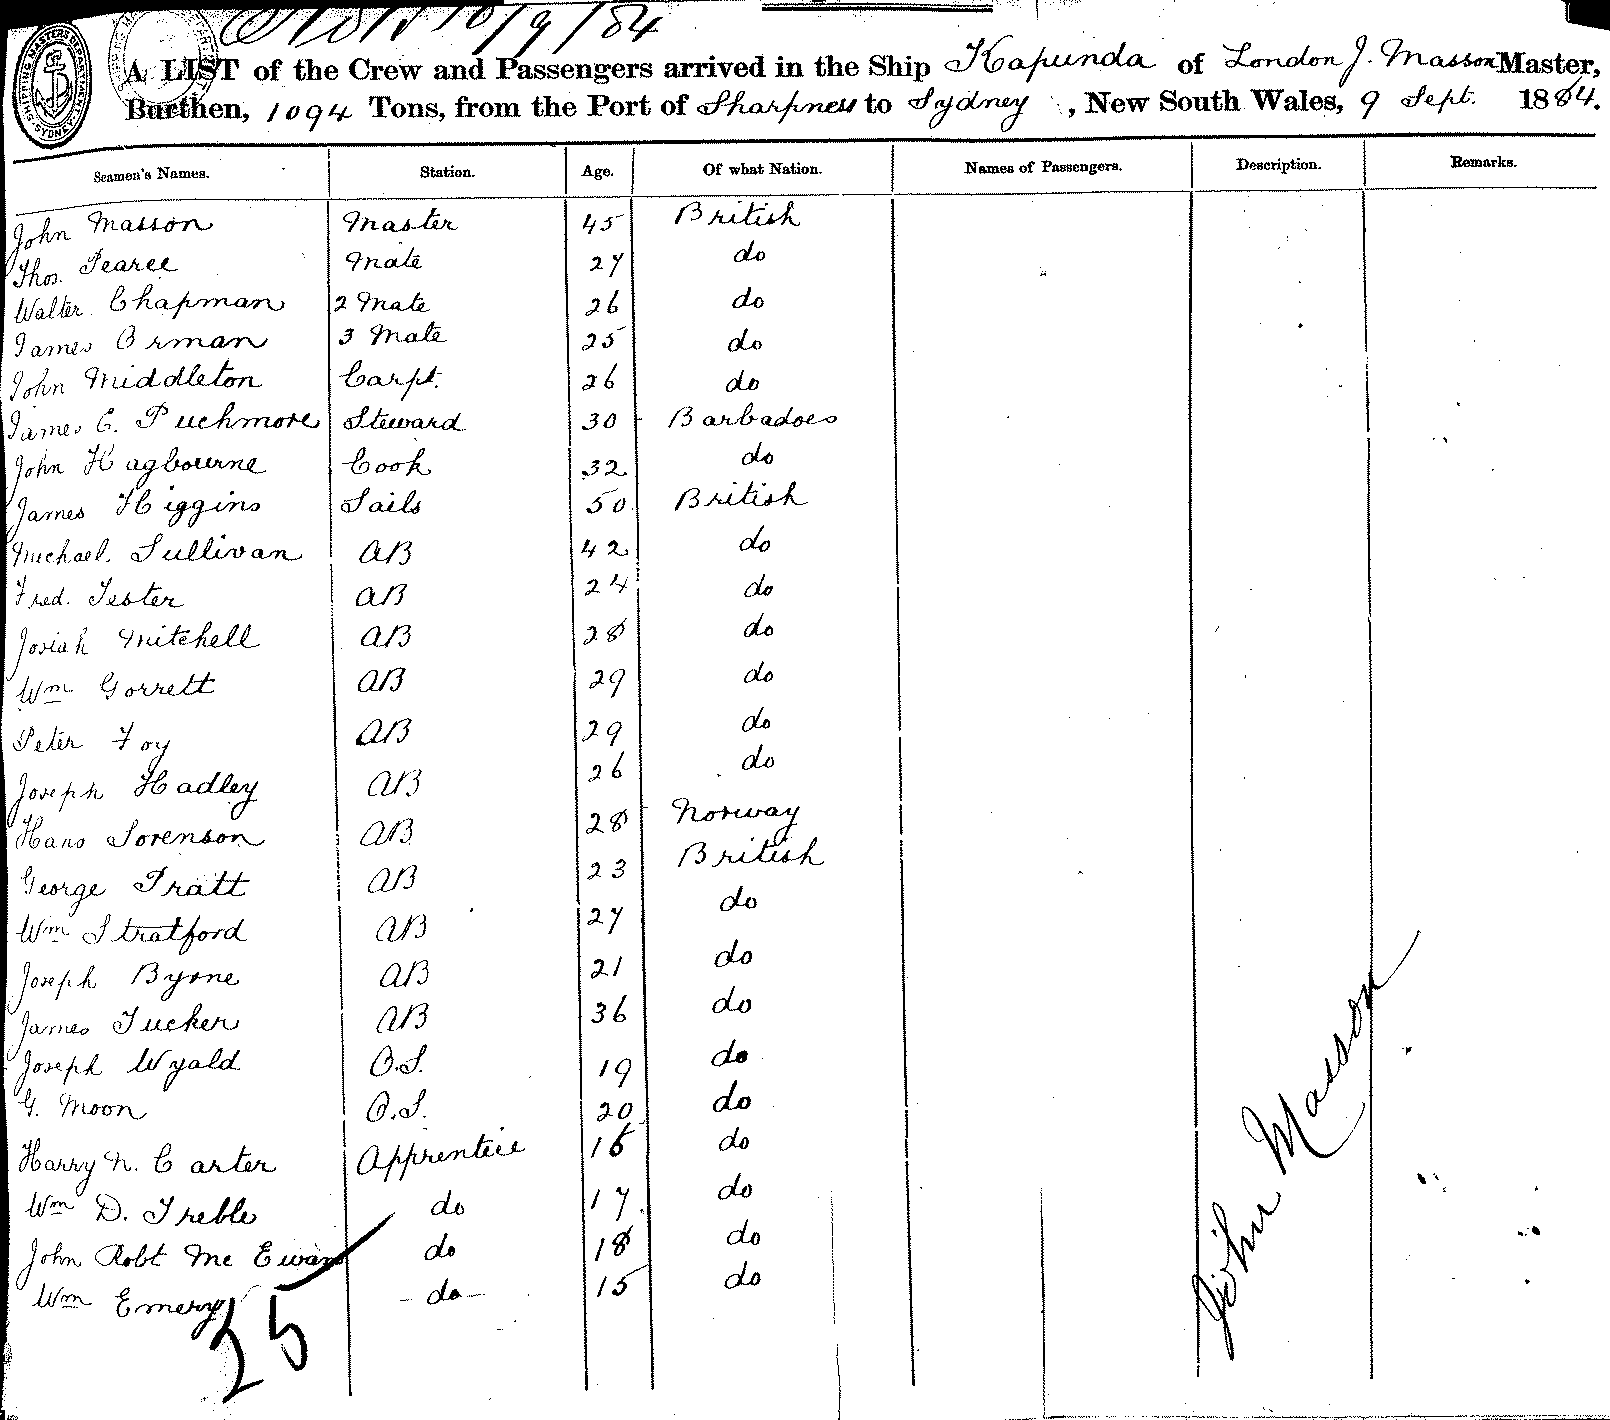 10/9/84
SHIPPING MASTERS DEPARTMENT SYDNEY
A LIST of the Crew and Passengers arrived in the Ship Kapunda of London J. Masson Master,
Burthen, 1094 Tons, from the Port of Sharpness to Sydney, New South Wales, 9 Sept. 1884.
Seamen's Names. Station. Age. Of what Nation. Names of Passengers. Description. Remarks.
John Masson Master 45 British
Thos. Pearce Mate 27 do
Walter Chapman 2 Mate 26 do
James Orman 3 Mate 25 do
John Middleton Carpt. 26 do
James C. Puchmore Steward 30 Barbadoes
John Hagbourne Cook 32 do
James Higgins Sails 50 British
Michael Sullivan AB 42 do
Fred. Tester AB 24 do
Josiah Mitchell AB 28 do
Wm Gorrett AB 29 do
Peter Foy AB 29 do
Joseph Hadley AB 26 do
Hans Sorenson AB 28 Norway
George Pratt AB 23 British
Wm Stratford AB 27 do
Joseph Byrne AB 21 do
James Tucker AB 36 do
Joseph Wyald O.S. 19 do
G. Moon O.S. 20 do
Harry N. Carter Apprentice 16 do
Wm D. Treble do 17 do
John Robt Mc Ewan do 18 do
Wm Emery do 15 do
25
John Masson